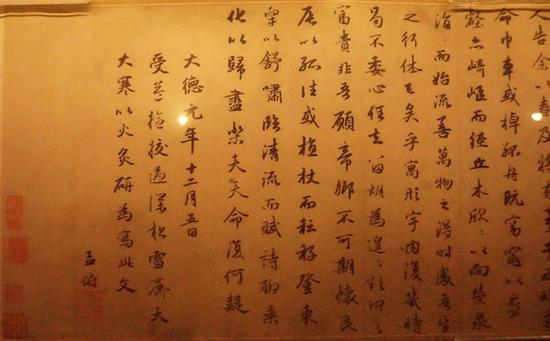 人告余以春及將有事
命巾車或棹孤舟既窈窕以尋
壑亦崎嶇而經丘木欣〻以向榮泉
涓〻而始流善萬物之得時感吾生
之行休已矣乎寓形宇內復幾時
曷不委心任去留胡為遑〻欲何之
富貴非吾願帝鄉不可期懷良
辰以孤往或植杖而耘耔登東
皋以舒嘯臨清流而賦詩聊乘
化以歸盡樂夫天命復何疑
大德元年十二月五日
受益提控過松雪齋天
大寒以火炙研為寫此文
孟頫